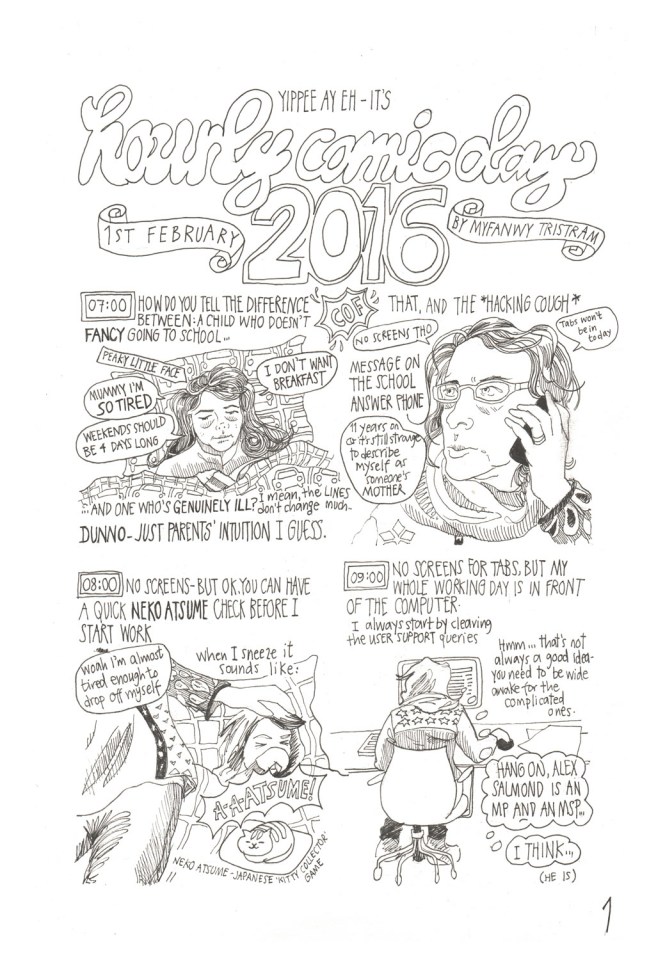 YIPPEE AY EH - IT'S
hourly comic day
2016
1ST FEBRUARY
BY MYFANWY TRISTRAM
07:00
HOW DO YOU TELL THE DIFFERENCE
BETWEEN: A CHILD WHO DOESN'T
FANCY GOING TO SCHOOL...
COF
PEAKY LITTLE FACE
I DON'T WANT
BREAKFAST
MUMMY I'M
SO TIRED
WEEKENDS SHOULD
BE 4 DAYS LONG
...AND ONE WHO'S GENUINELY ILL?
I mean, the LINES
don't change much..
DUNNO - JUST PARENTS' INTUITION I GUESS.
THAT, AND THE *HACKING COUGH*
NO SCREENS THO
Tabs won't
be in
today
MESSAGE ON
THE SCHOOL
ANSWER PHONE
11 years on
& it's still strange
to describe
myself as
someone's
MOTHER
08:00
NO SCREENS - BUT OK. YOU CAN HAVE
A QUICK NEKO ATSUME CHECK BEFORE I
START WORK
Woah I'm almost
tired enough to
drop off myself
When I sneeze it
sounds like:
A-A-ATSUME!
NEKO ATSUME - JAPANESE 'KITTY COLLECTOR'
GAME
09:00
NO SCREENS FOR TABS, BUT MY
WHOLE WORKING DAY IS IN FRONT
OF THE COMPUTER.
I always start by cleaving
the USER SUPPORT queries
Hmm... that's not
always a good idea -
you need to be wide
awake for the
complicated
ones.
HANG ON, ALEX
SALMOND IS AN
MP AND AN MSP...
I THINK...
(HE IS)
1